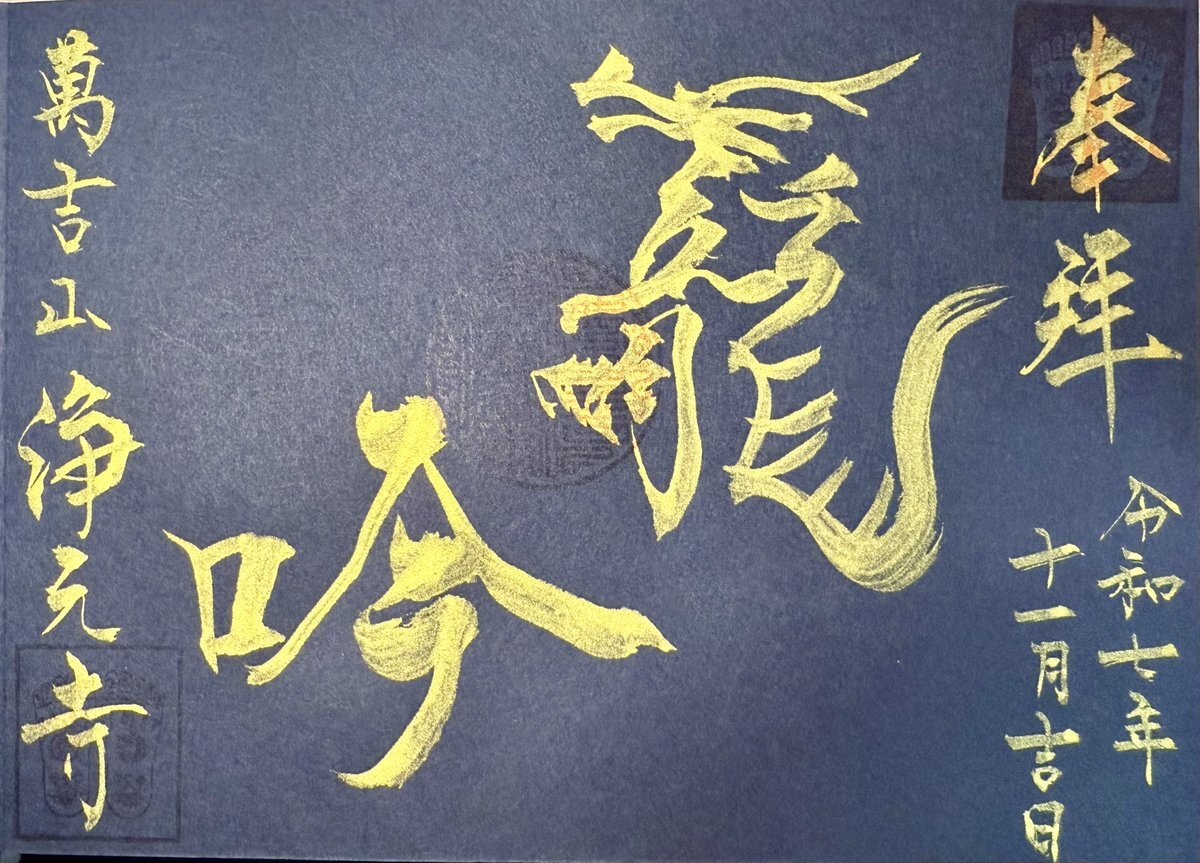 奉拜
令和七年
十一月吉日
龍吟
萬吉山 浄元寺